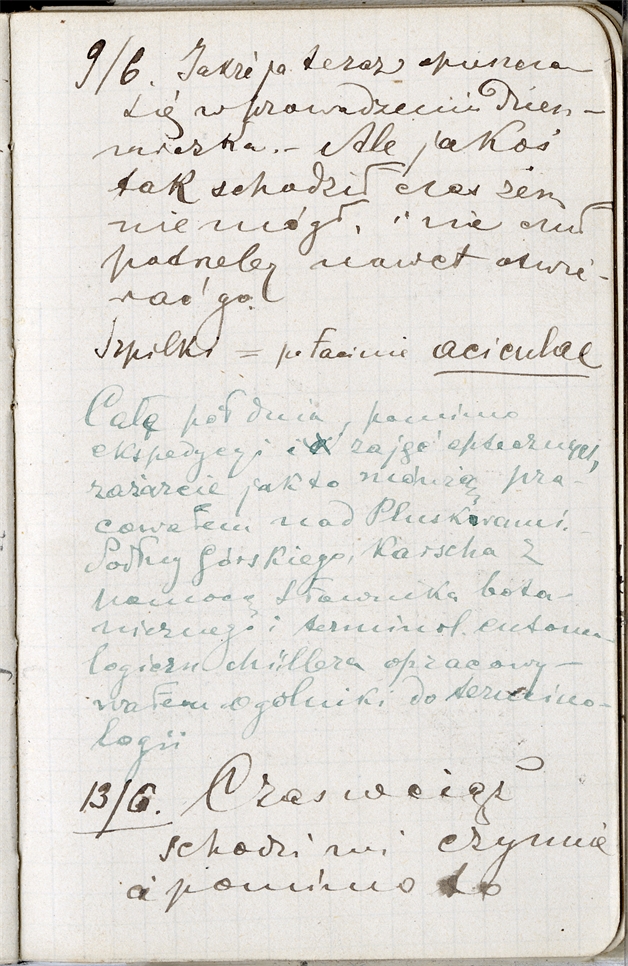 9/6. Jakże ja teraz opuszczam
się w prowadzeniu Dzien-
niczka. – Ale jakoś
tak schodził czas żem
nie mógł, i nie
nawet otwie-
rać go.
Szpilki = po łacinie aciculae
Całe pół dnia, pomimo
ekspedycyi i zajęć aptecznych,
zażarcie jak to mówią pra-
cowałem nad Pluskwami.
Podług Górskiego, Karscha z
pomocą Słownika bota-
nicznego i terminol. entomo-
logiczn Müllera opracowy-
wałem ogólniki do termino-
logii
13/6. Czas wciąż
schodzi mi czynnie
a pomimo to